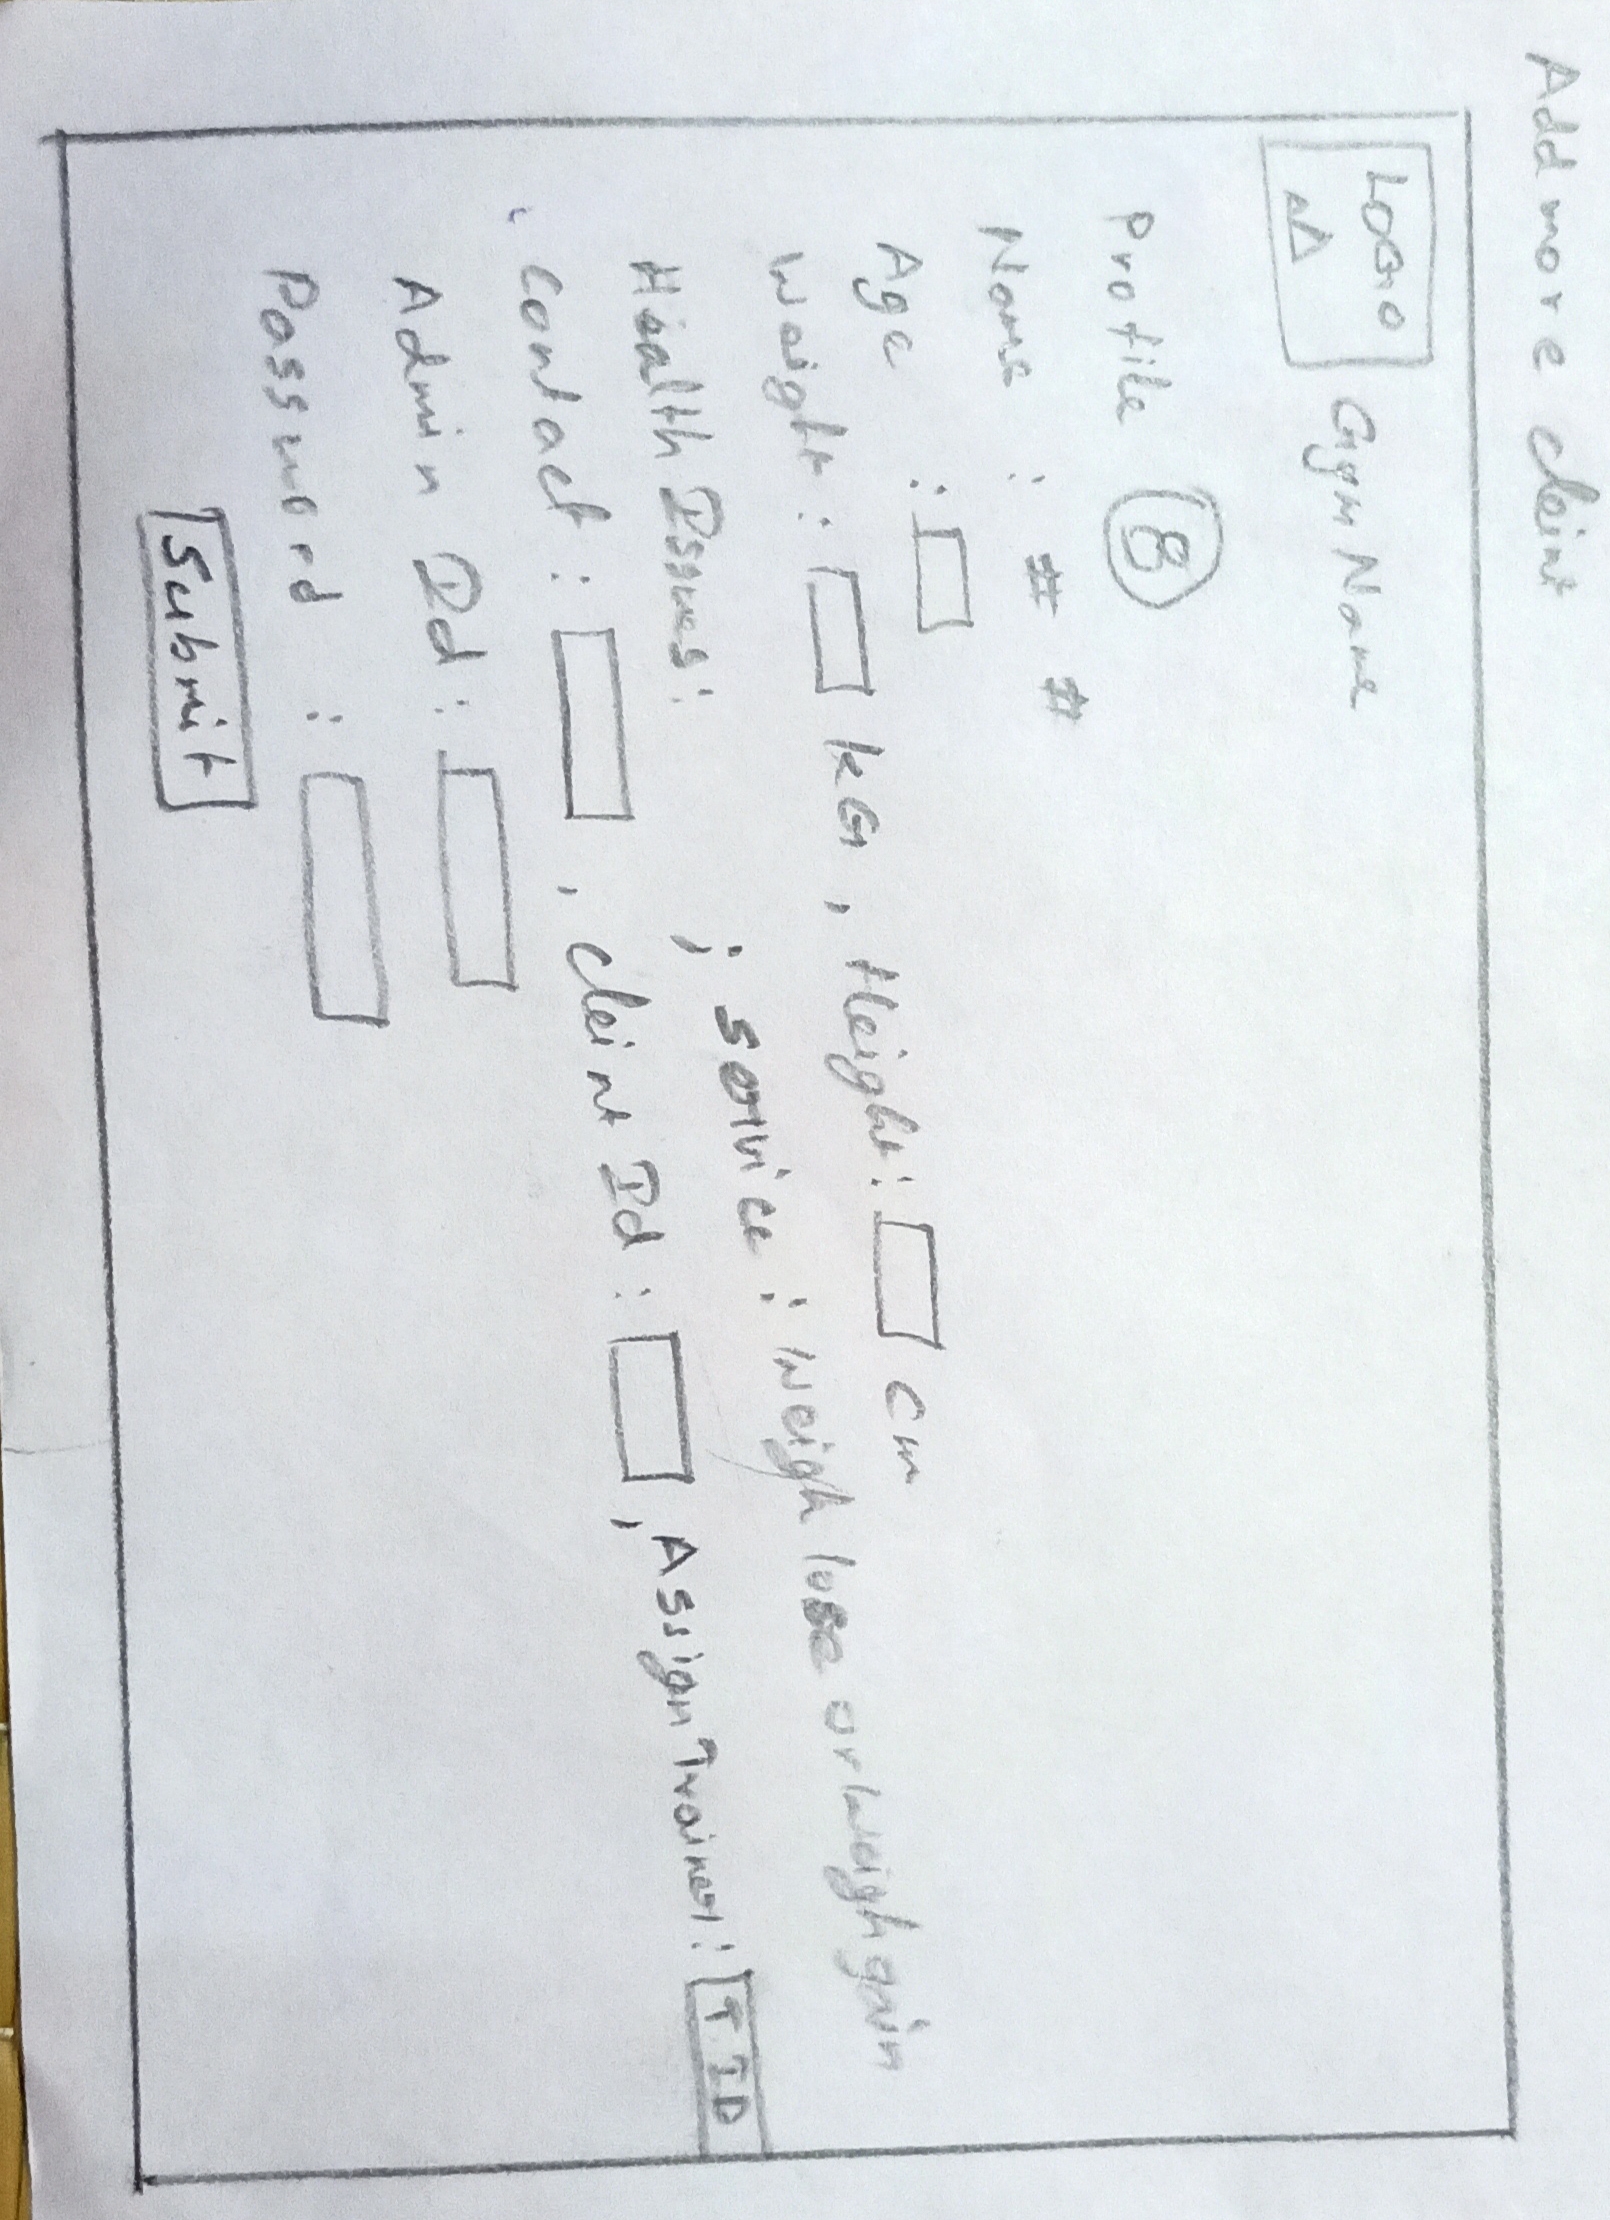 Add more cleint
LOGO Gym Name
Profile
Name : # #
Age :
Weight : KG , Height : cm
Health Issues : ; service : weigh lose or weigh gain
Contact : , cleint Id : , Assign Trainer : T ID
Admin Id :
Password :
Submit